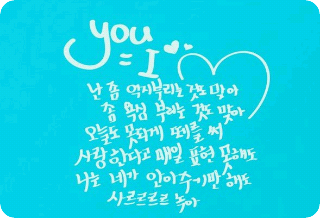 you
= I
난 좀 억지부리는것도 많아
좀 욕심 부리는 것도 많아
오늘도 못되게 떼를 써
사랑한다고 매일 표현 못해도
나는 네가 안아주기만 해도
사르르르르 녹아